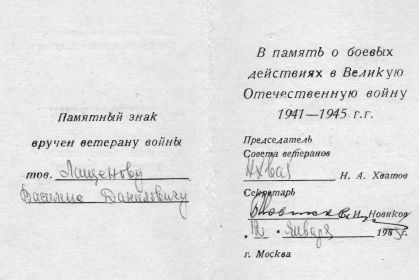 Памятный знак
вручен ветерану войны
тов. Лащенову
Василию Даниловичу
В память о боевых
действиях в Великую
Отечественную войну
1941—1945 г.г.
Председатель
Совета ветеранов
Н. А. Хватов
Секретарь
И. Новиков
"12" января 198 г.
г. Москва